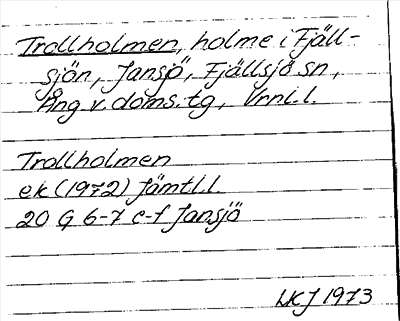 Trollholmen, holme i Fjäll-
sjön, Jansjö, Fjällsjö sn,
Ång v. doms. tg, Vrnl.l.
Trollholmen
ek (1972) Jämtl.l
20 G 6-7 c-f Jansjö
LKJ 1973